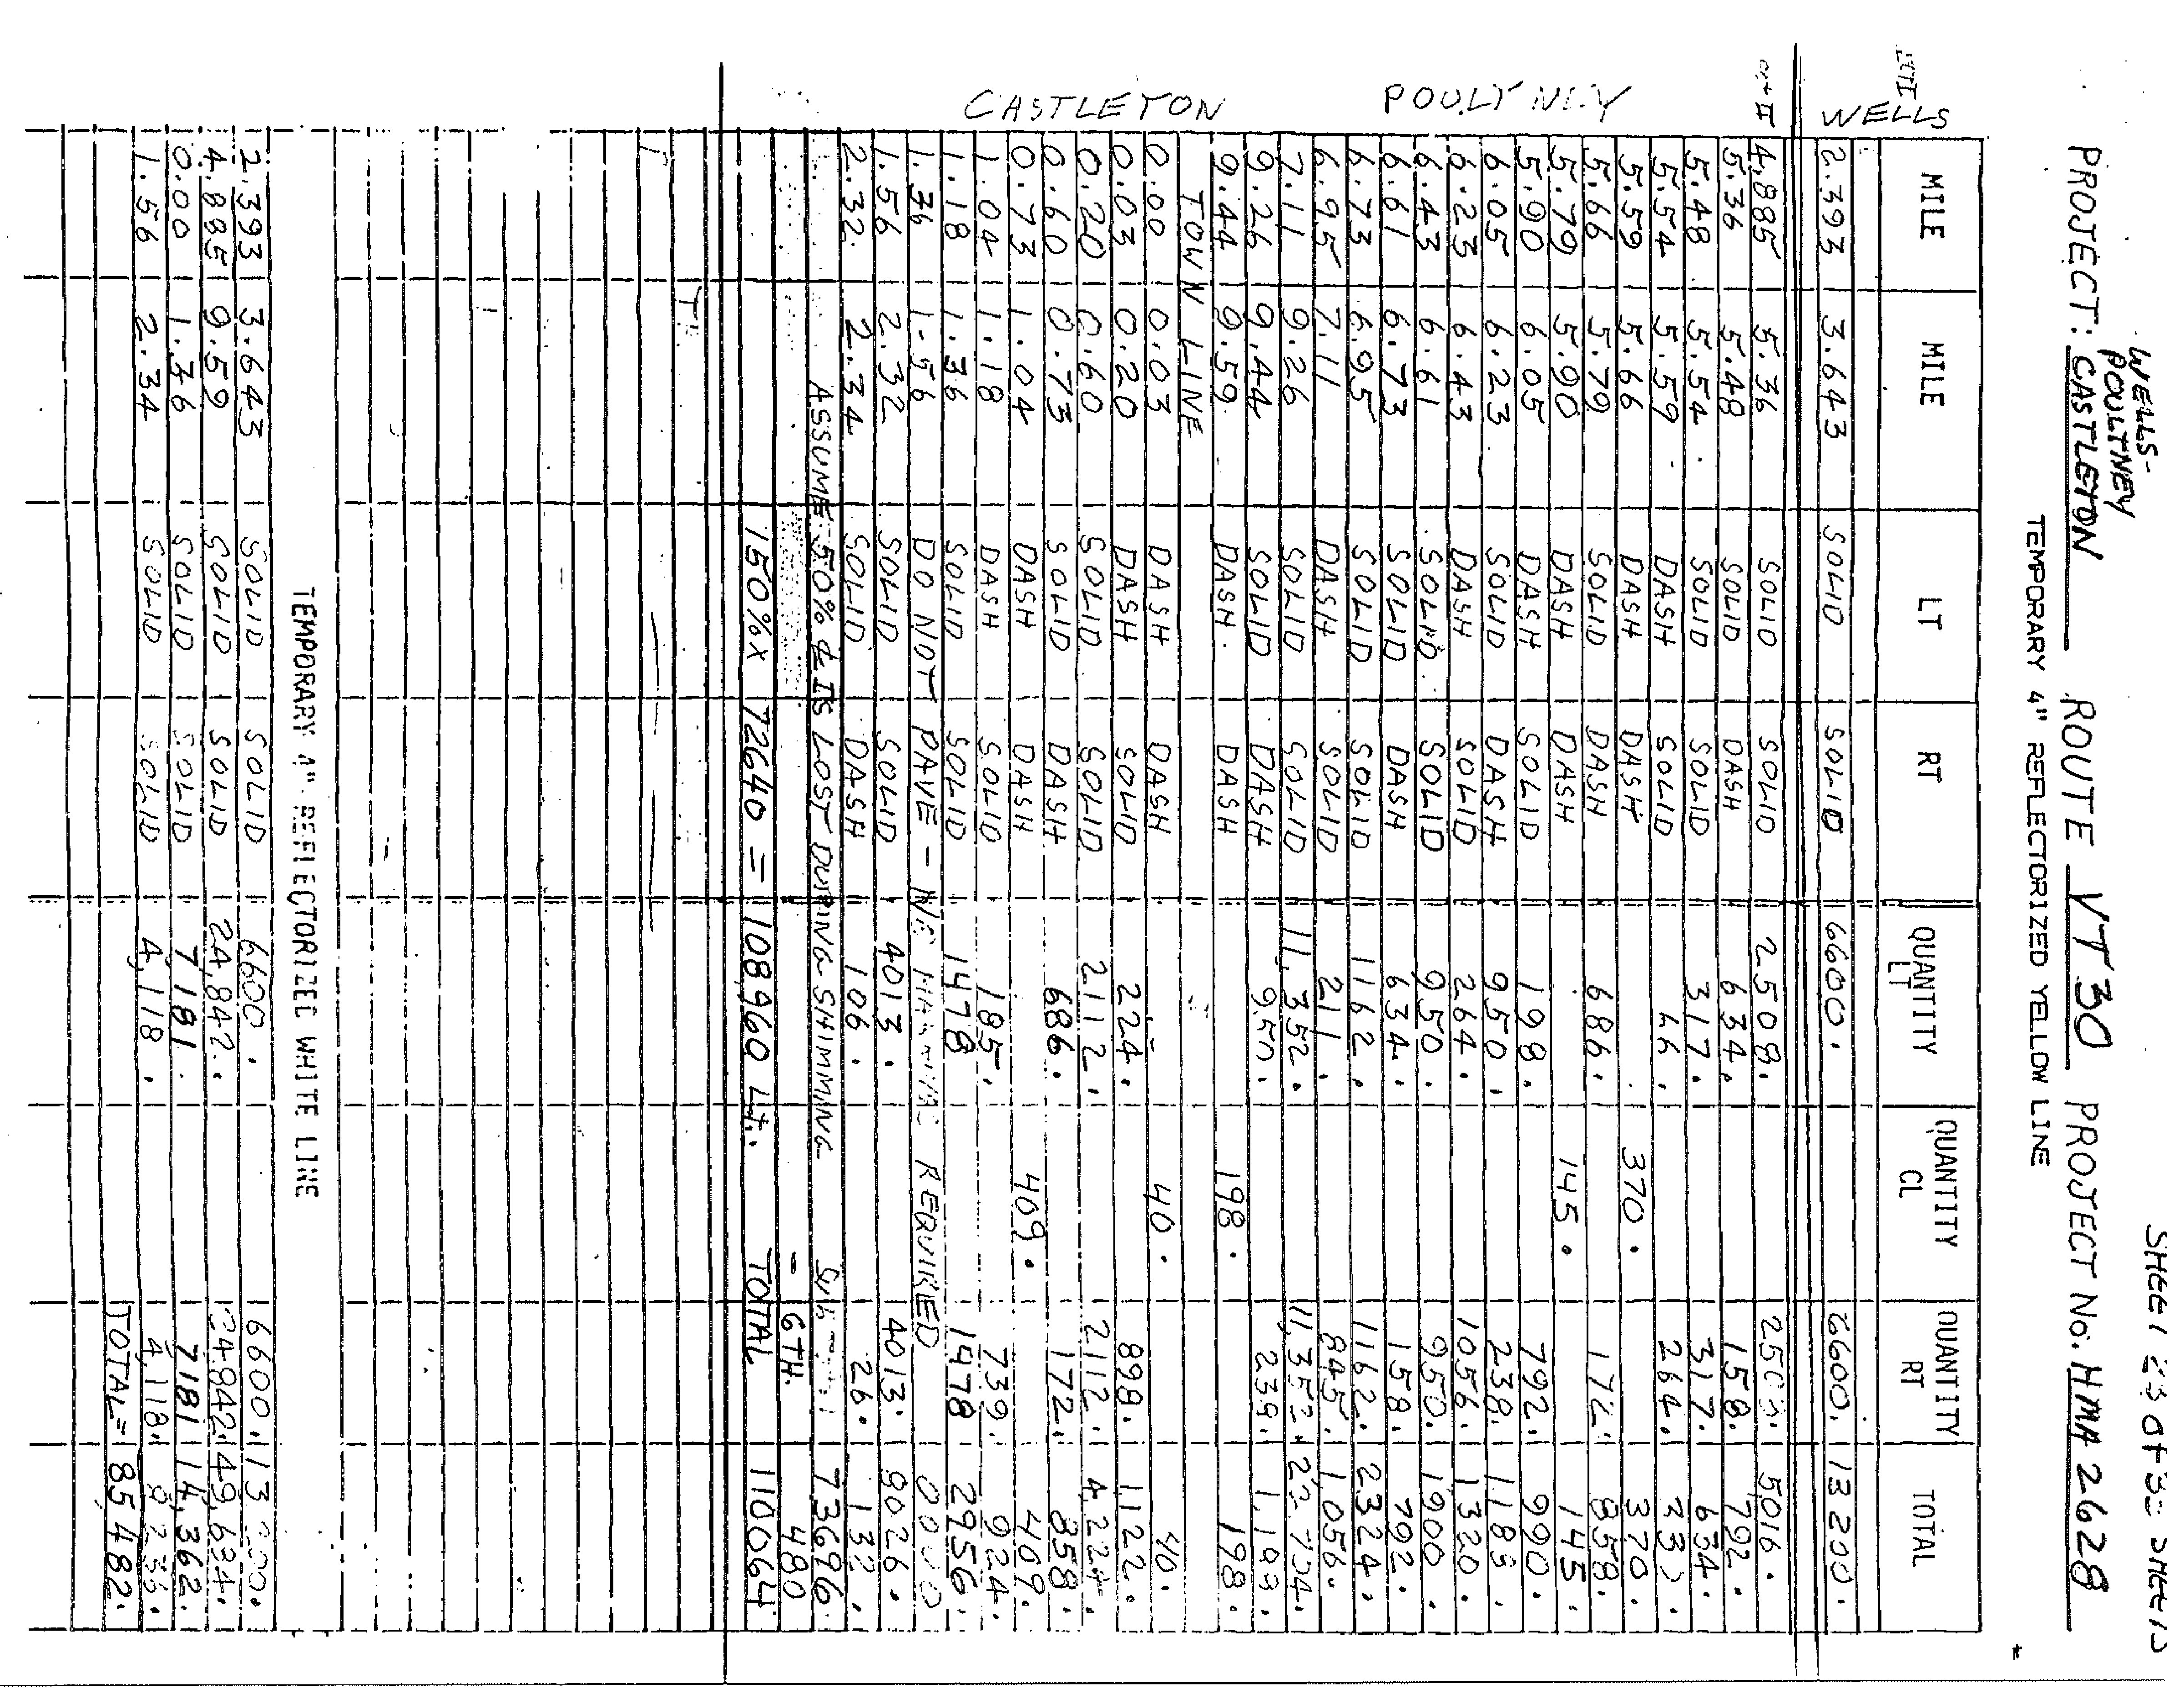 SHEET 23 OF 32 SHEETS
WELLS-
POULTNEY
PROJECT: CASTLETON ROUTE VT 30 PROJECT NO. HMA 2628
TEMPORARY 4" REFLECTORIZED YELLOW LINE
MILE MILE LT RT QUANTITY LT QUANTITY CL QUANTITY RT TOTAL
WELLS 2.393 3.643 SOLID SOLID 6600. 6600. 13200.
4.885 5.36 SOLID SOLID 2508. 2508. 5016.
5.36 5.48 SOLID DASH 634. 158. 792.
5.48 5.54 SOLID SOLID 317. 317. 634.
5.54 5.59 DASH SOLID 66. 264. 330.
5.59 5.66 DASH DASH 370. 370.
5.66 5.79 SOLID DASH 686. 172. 858.
5.79 5.90 DASH DASH 145. 145.
5.90 6.05 DASH SOLID 198. 792. 990.
6.05 6.23 SOLID DASH 950. 238. 1188.
6.23 6.43 DASH SOLID 264. 1056. 1320.
6.43 6.61 SOLID SOLID 950. 950. 1900.
6.61 6.73 SOLID DASH 634. 158. 792.
6.73 6.95 SOLID SOLID 1162. 1162. 2324.
6.95 7.11 DASH SOLID 211. 845. 1056.
7.11 9.26 SOLID SOLID 11,352. 11,352. 22,704.
9.26 9.44 SOLID DASH 950. 238. 1,188.
9.44 9.59 DASH DASH 198. 198.
POULTNEY
TOWN LINE
0.00 0.03 DASH DASH 40. 40.
0.03 0.20 DASH SOLID 224. 898. 1122.
0.20 0.60 SOLID SOLID 2112. 2112. 4,224.
0.60 0.73 SOLID DASH 686. 172. 858.
0.73 1.04 DASH DASH 409. 409.
1.04 1.18 DASH SOLID 185. 739. 924.
1.18 1.36 SOLID SOLID 1478 1478 2956.
1.36 1.56 DO NOT PAVE - NO MARKING REQUIRED 0000
1.56 2.32 SOLID SOLID 4013. 4013. 8026.
2.32 2.34 SOLID DASH 106. 26. 132.
CASTLETON
ASSUME 50% IS LOST DURING SHIMMING 73696
- GTH. 480
150% x 72640 = 108960 L.F. TOTAL 110064
TEMPORARY 4" REFLECTORIZED WHITE LINE
2.393 3.643 SOLID SOLID 6600. 6600. 13200.
4.885 9.59 SOLID SOLID 24,842. 24842. 49,684.
0.00 1.36 SOLID SOLID 7181. 7181 14,362.
1.56 2.34 SOLID SOLID 4,118. 4,118. 8236.
TOTAL = 85482.